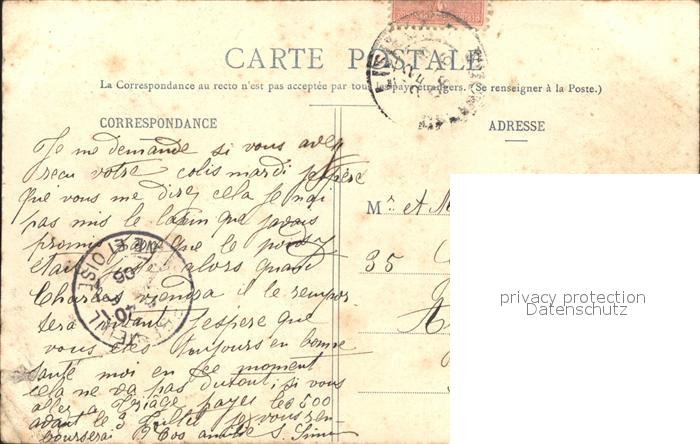 CARTE POSTALE
La Correspondance au recto n'est pas acceptée par tous les pays étrangers. (Se renseigner à la Poste.)
CORRESPONDANCE
ADRESSE
Je me demande si vous avez
recu votre colis mardi j'espère
Que vous me direz cela Je n'ai
pas mis le lapin que j'avais
promis que le poids
était alors quand
Charles viendra il le rempor
tera j'espère que
vous êtes toujours en bonne
santé moi en ce moment
cela ne va pas du tout; si vous
allez a Triage payez les 500
avant le 3 Juillet je vous ren
bourserai
Mr et M
35
SEINE ET OISE
06
privacy protection
Datenschutz